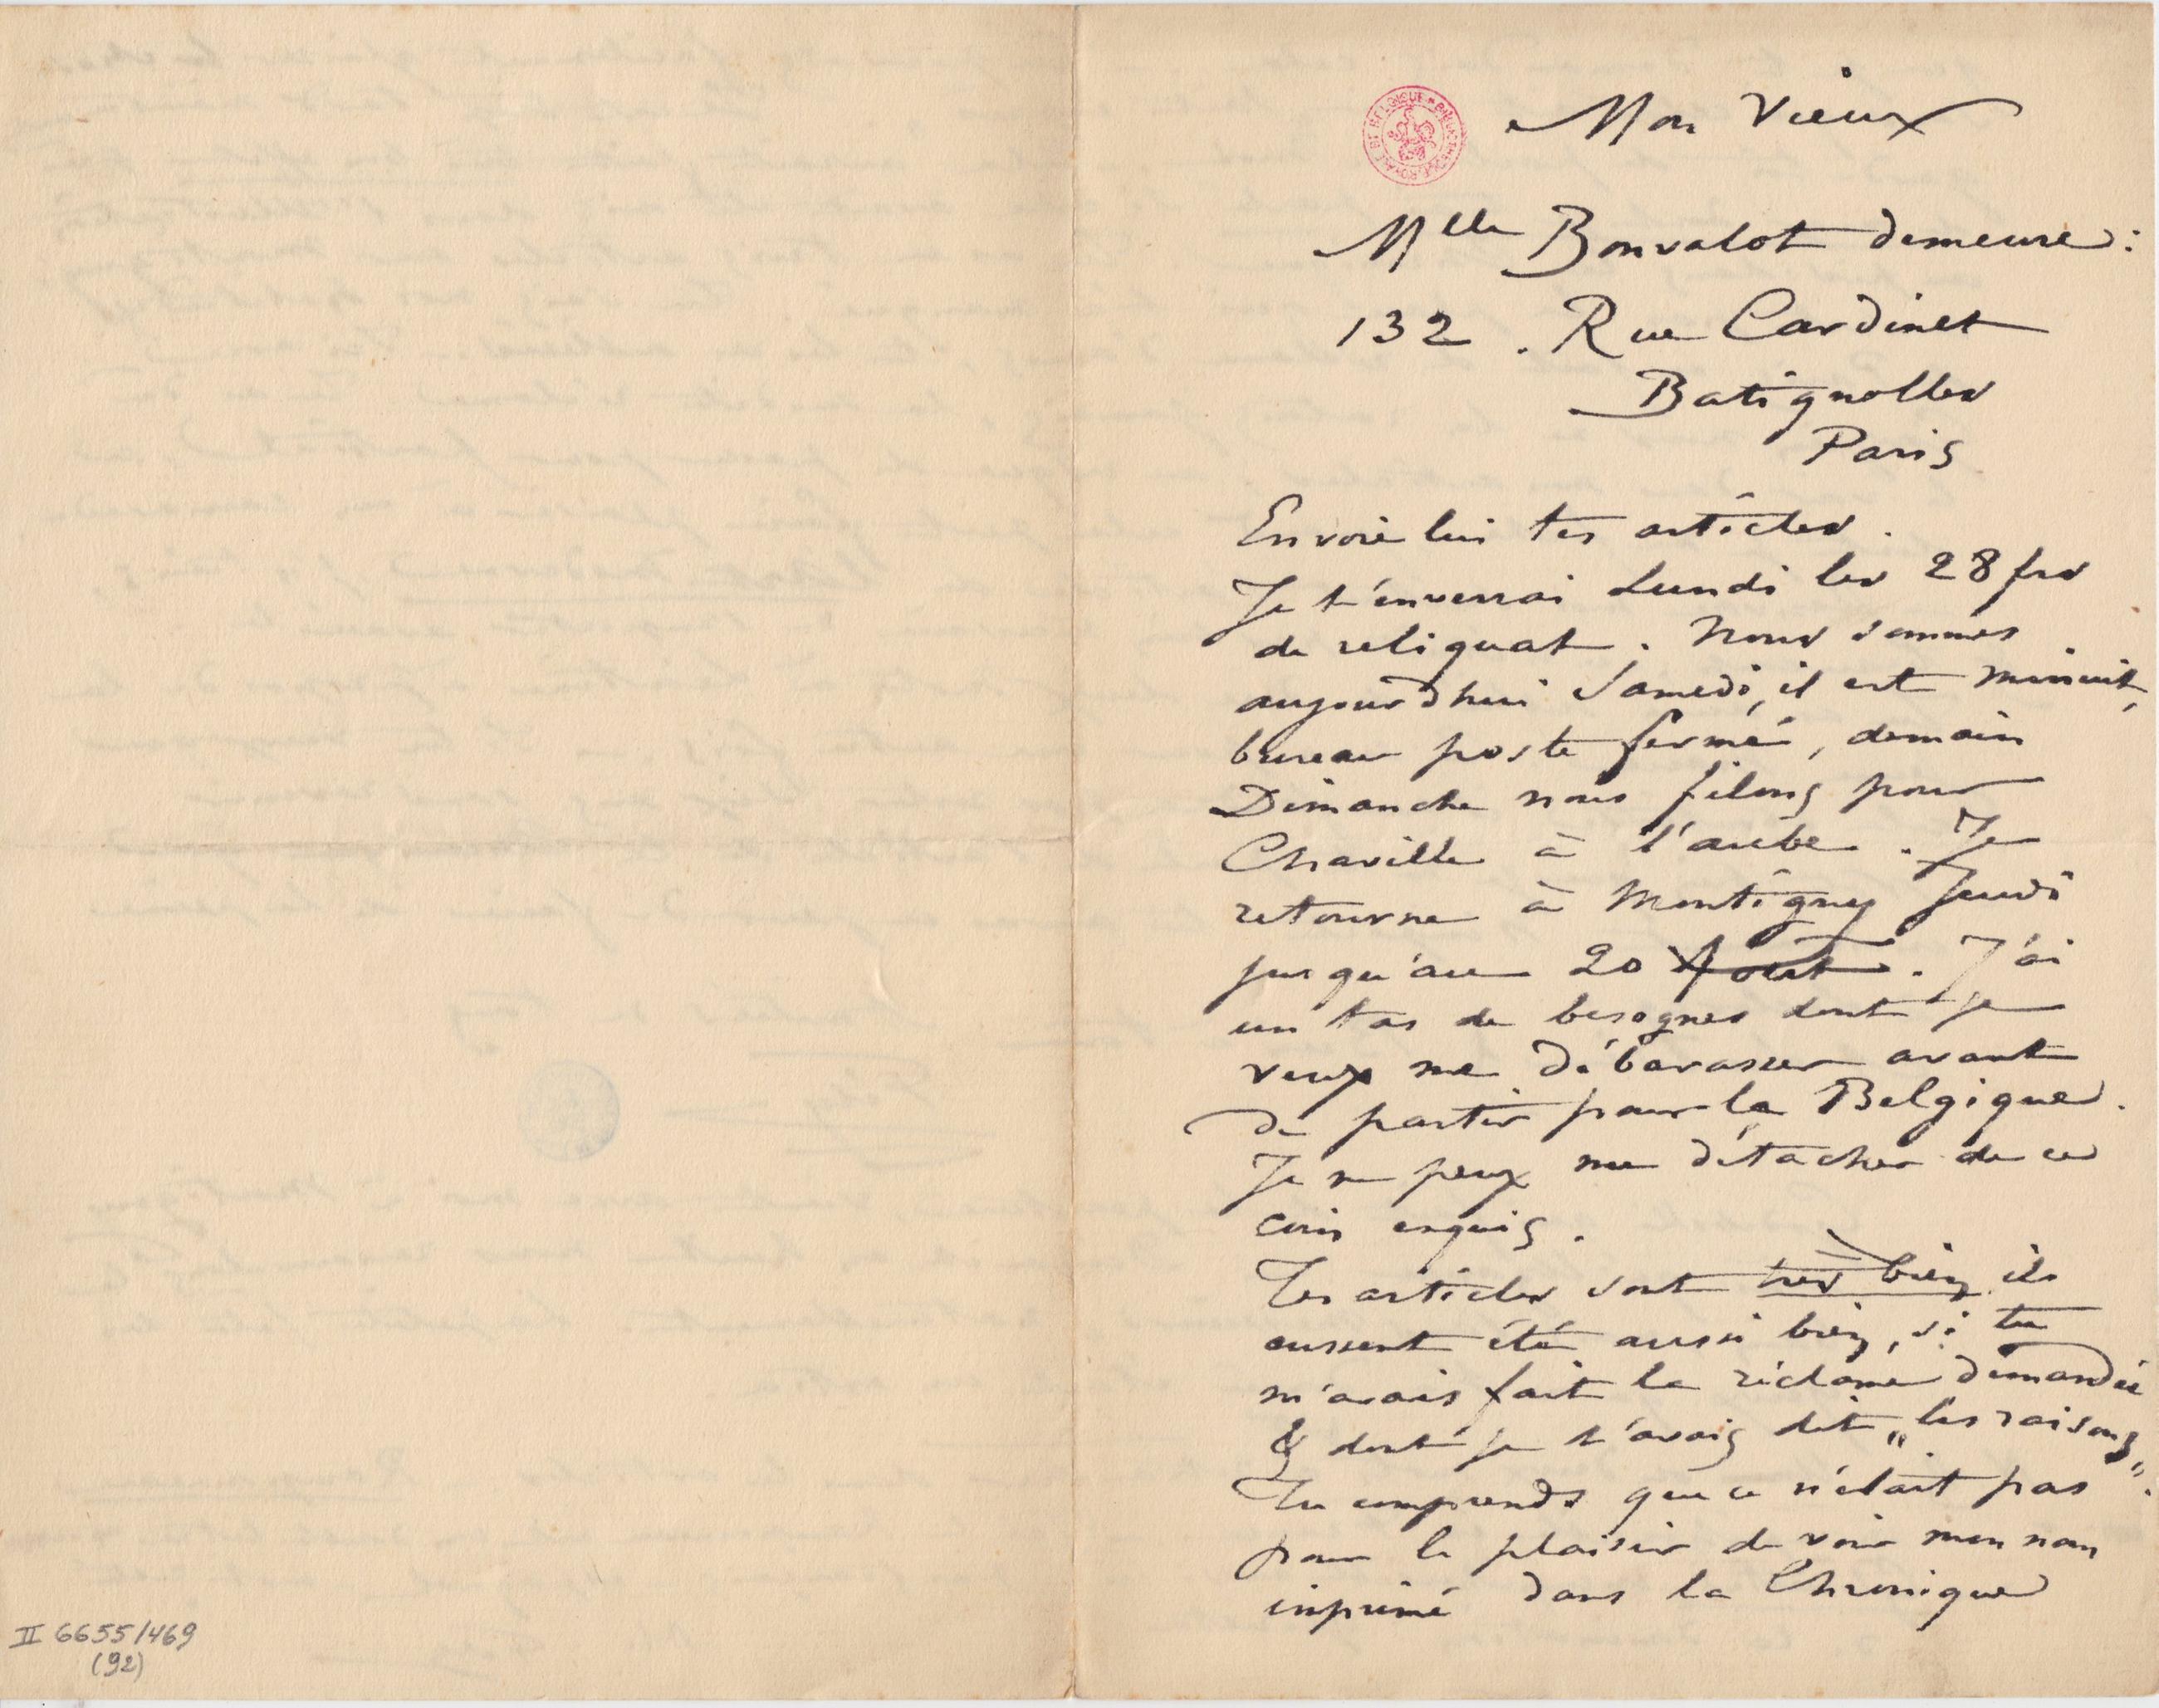 Mon Vieux
Mlle Bonvalot demeure :
132 . Rue Cardinet
Batignolles
Paris
Envoie lui tes articles .
Je t'enverrai Lundi les 28 frs
de reliquat . Nous sommes
aujourdhui Samedi, il est minuit,
bureau poste fermé, demain
Dimanche nous filons pour
Chaville à l'aube . Je
retourne à Montigny Jeudi
jusqu'au 20 Août . J'ai
un tas de besognes dont je
veux me débarasser avant
de partir pour la Belgique .
Je ne peux me détacher de ce
coin exquis .
Tes articles sont très bien, ils
eussent été aussi bien, si tu
m'avais fait la réclame demandée
& dont je t'avais dit „les raisons" .
Tu comprends que ce n'était pas
pour le plaisir de voir mon nom
imprimé dans la Chronique
BIBLIOTHÈQUE ROYALE DE BELGIQUE
II 6655/469
(92)